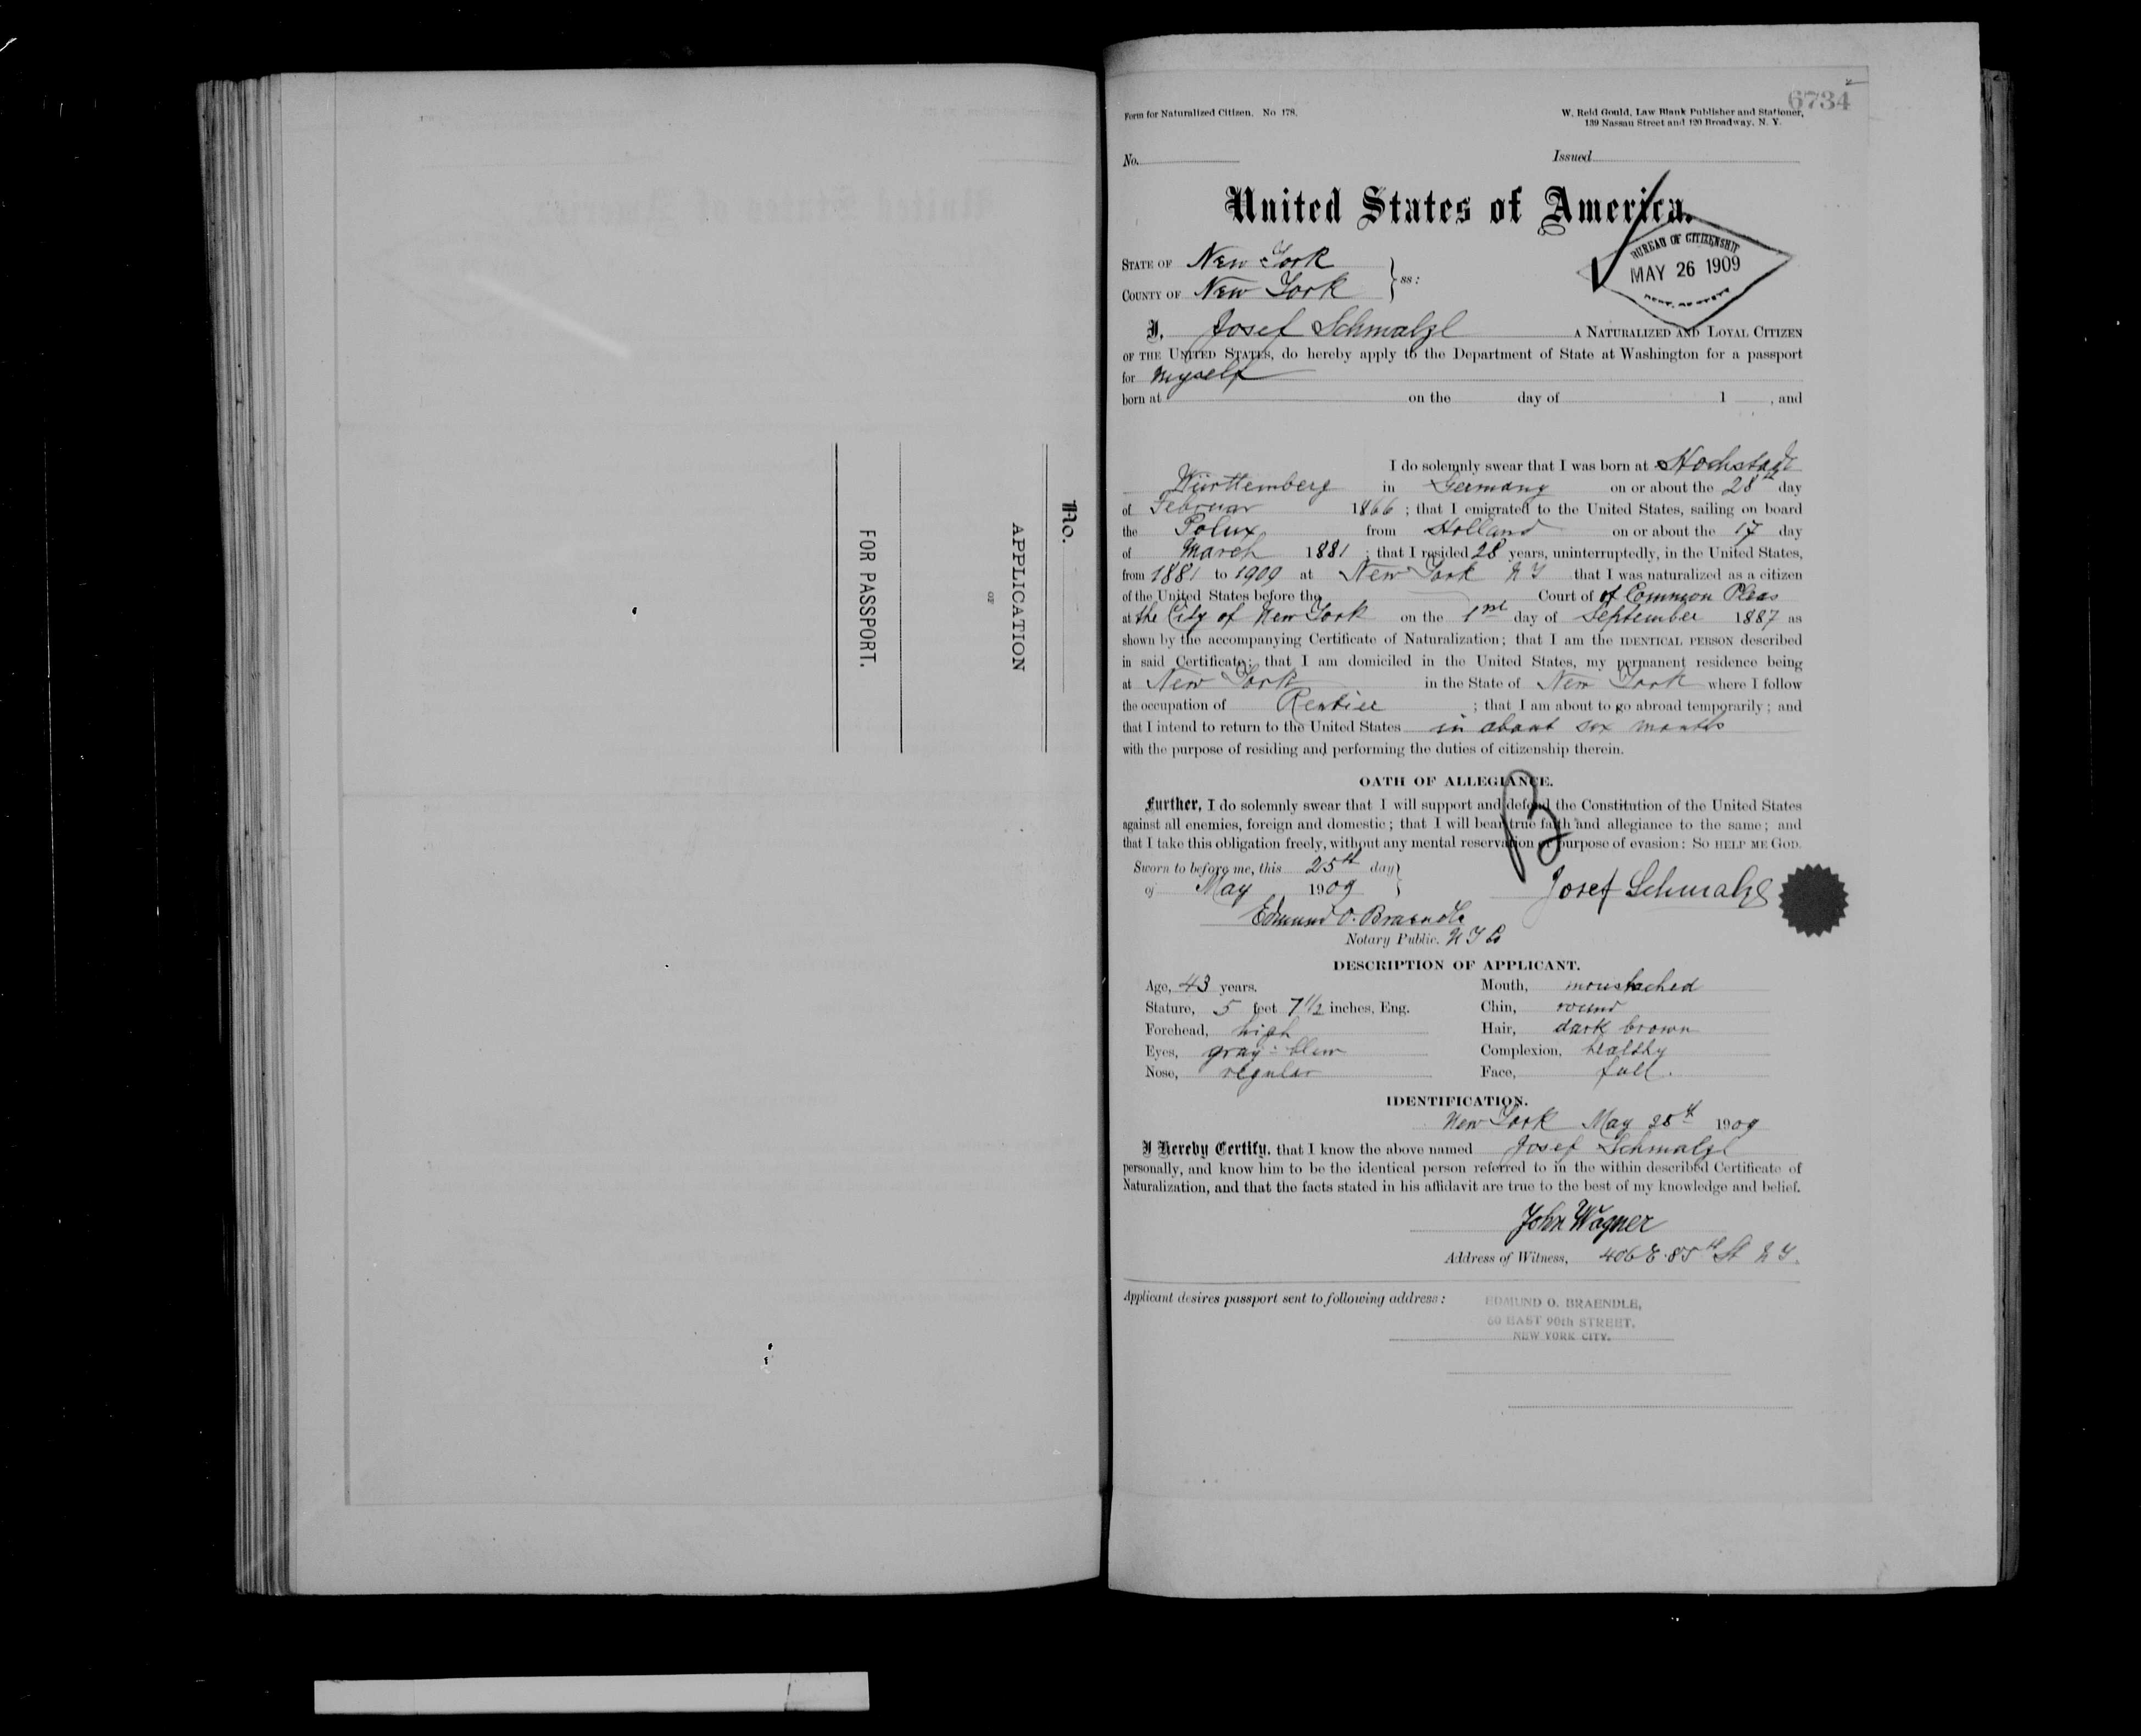 No.
APPLICATION
OF
FOR PASSPORT.
6734
Form for Naturalized Citizen. No 178.
W. Reid Gould, Law Blank Publisher and Stationer,
139 Nassau Street and 120 Broadway, N. Y.
No. Issued
United States of America.
BUREAU OF CITIZENSHIP
MAY 26 1909
DEPT. OF STATE
STATE OF New York
COUNTY OF New York } ss:
I, Josef Schmalzl A NATURALIZED AND LOYAL CITIZEN
OF THE UNITED STATES, do hereby apply to the Department of State at Washington for a passport
for myself
born at on the day of 1 , and
I do solemnly swear that I was born at Hochstadt
Württemberg in Germany on or about the 28th day
of Februar 1866 ; that I emigrated to the United States, sailing on board
the Polux from Holland on or about the 17 day
of March 1881 ; that I resided 28 years, uninterruptedly, in the United States,
from 1881 to 1909 at New York N Y that I was naturalized as a citizen
of the United States before the Court of of Common Pleas
at the City of New York on the 1st day of September 1887 as
shown by the accompanying Certificate of Naturalization; that I am the IDENTICAL PERSON described
in said Certificate; that I am domiciled in the United States, my permanent residence being
at New York in the State of New York where I follow
the occupation of Rentier ; that I am about to go abroad temporarily; and
that I intend to return to the United States in about six months
with the purpose of residing and performing the duties of citizenship therein.
OATH OF ALLEGIANCE.
Further, I do solemnly swear that I will support and defend the Constitution of the United States
against all enemies, foreign and domestic; that I will bear true faith and allegiance to the same; and
that I take this obligation freely, without any mental reservation or purpose of evasion: SO HELP ME GOD.
Sworn to before me, this 25th day
of May 1909 }
Josef Schmalzl
Edmund O. Braendle
Notary Public. N Y Co
DESCRIPTION OF APPLICANT.
Age, 43 years. Mouth, moustached
Stature, 5 feet 7 1/2 inches, Eng. Chin, round
Forehead, high Hair, dark brown
Eyes, gray-blew Complexion, healthy
Nose, regular Face, full.
IDENTIFICATION.
New York May 25th 1909
I Hereby Certify, that I know the above named Josef Schmalzl
personally, and know him to be the identical person referred to in the within described Certificate of
Naturalization, and that the facts stated in his affidavit are true to the best of my knowledge and belief.
John Wagner
Address of Witness, 406 E. 85th St N Y.
Applicant desires passport sent to following address:
EDMUND O. BRAENDLE,
60 EAST 90th STREET,
NEW YORK CITY.